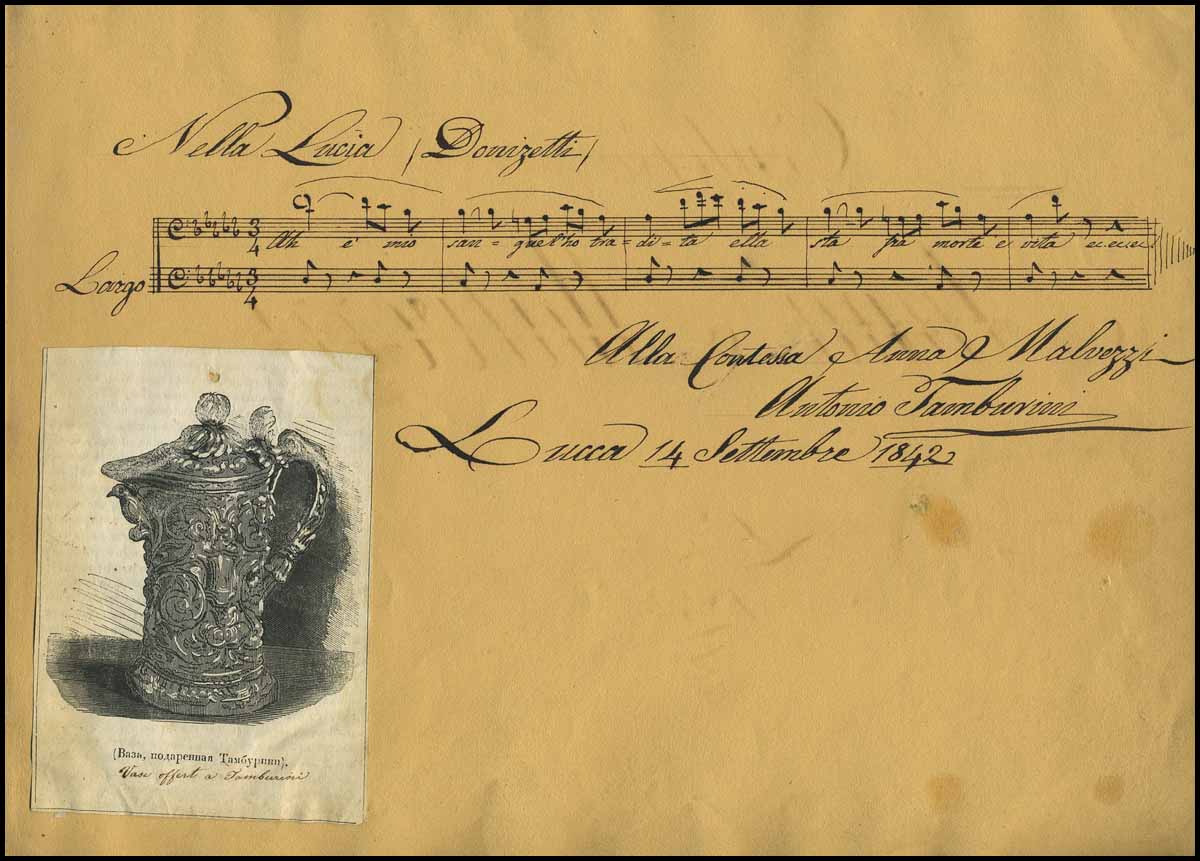 Nella Lucia (Donizetti)
3/4
Ah è mio san-gue l'ho tra-di-ta ella sta fra morte e vita ec: ec: ec:
Largo
3/4
Alla Contessa Anna Malvezzi
Antonio Tamburini
Lucca 14 Settembre 1842
(Ваза, подаренная Тамбурини).
Vase offert a Tamburini